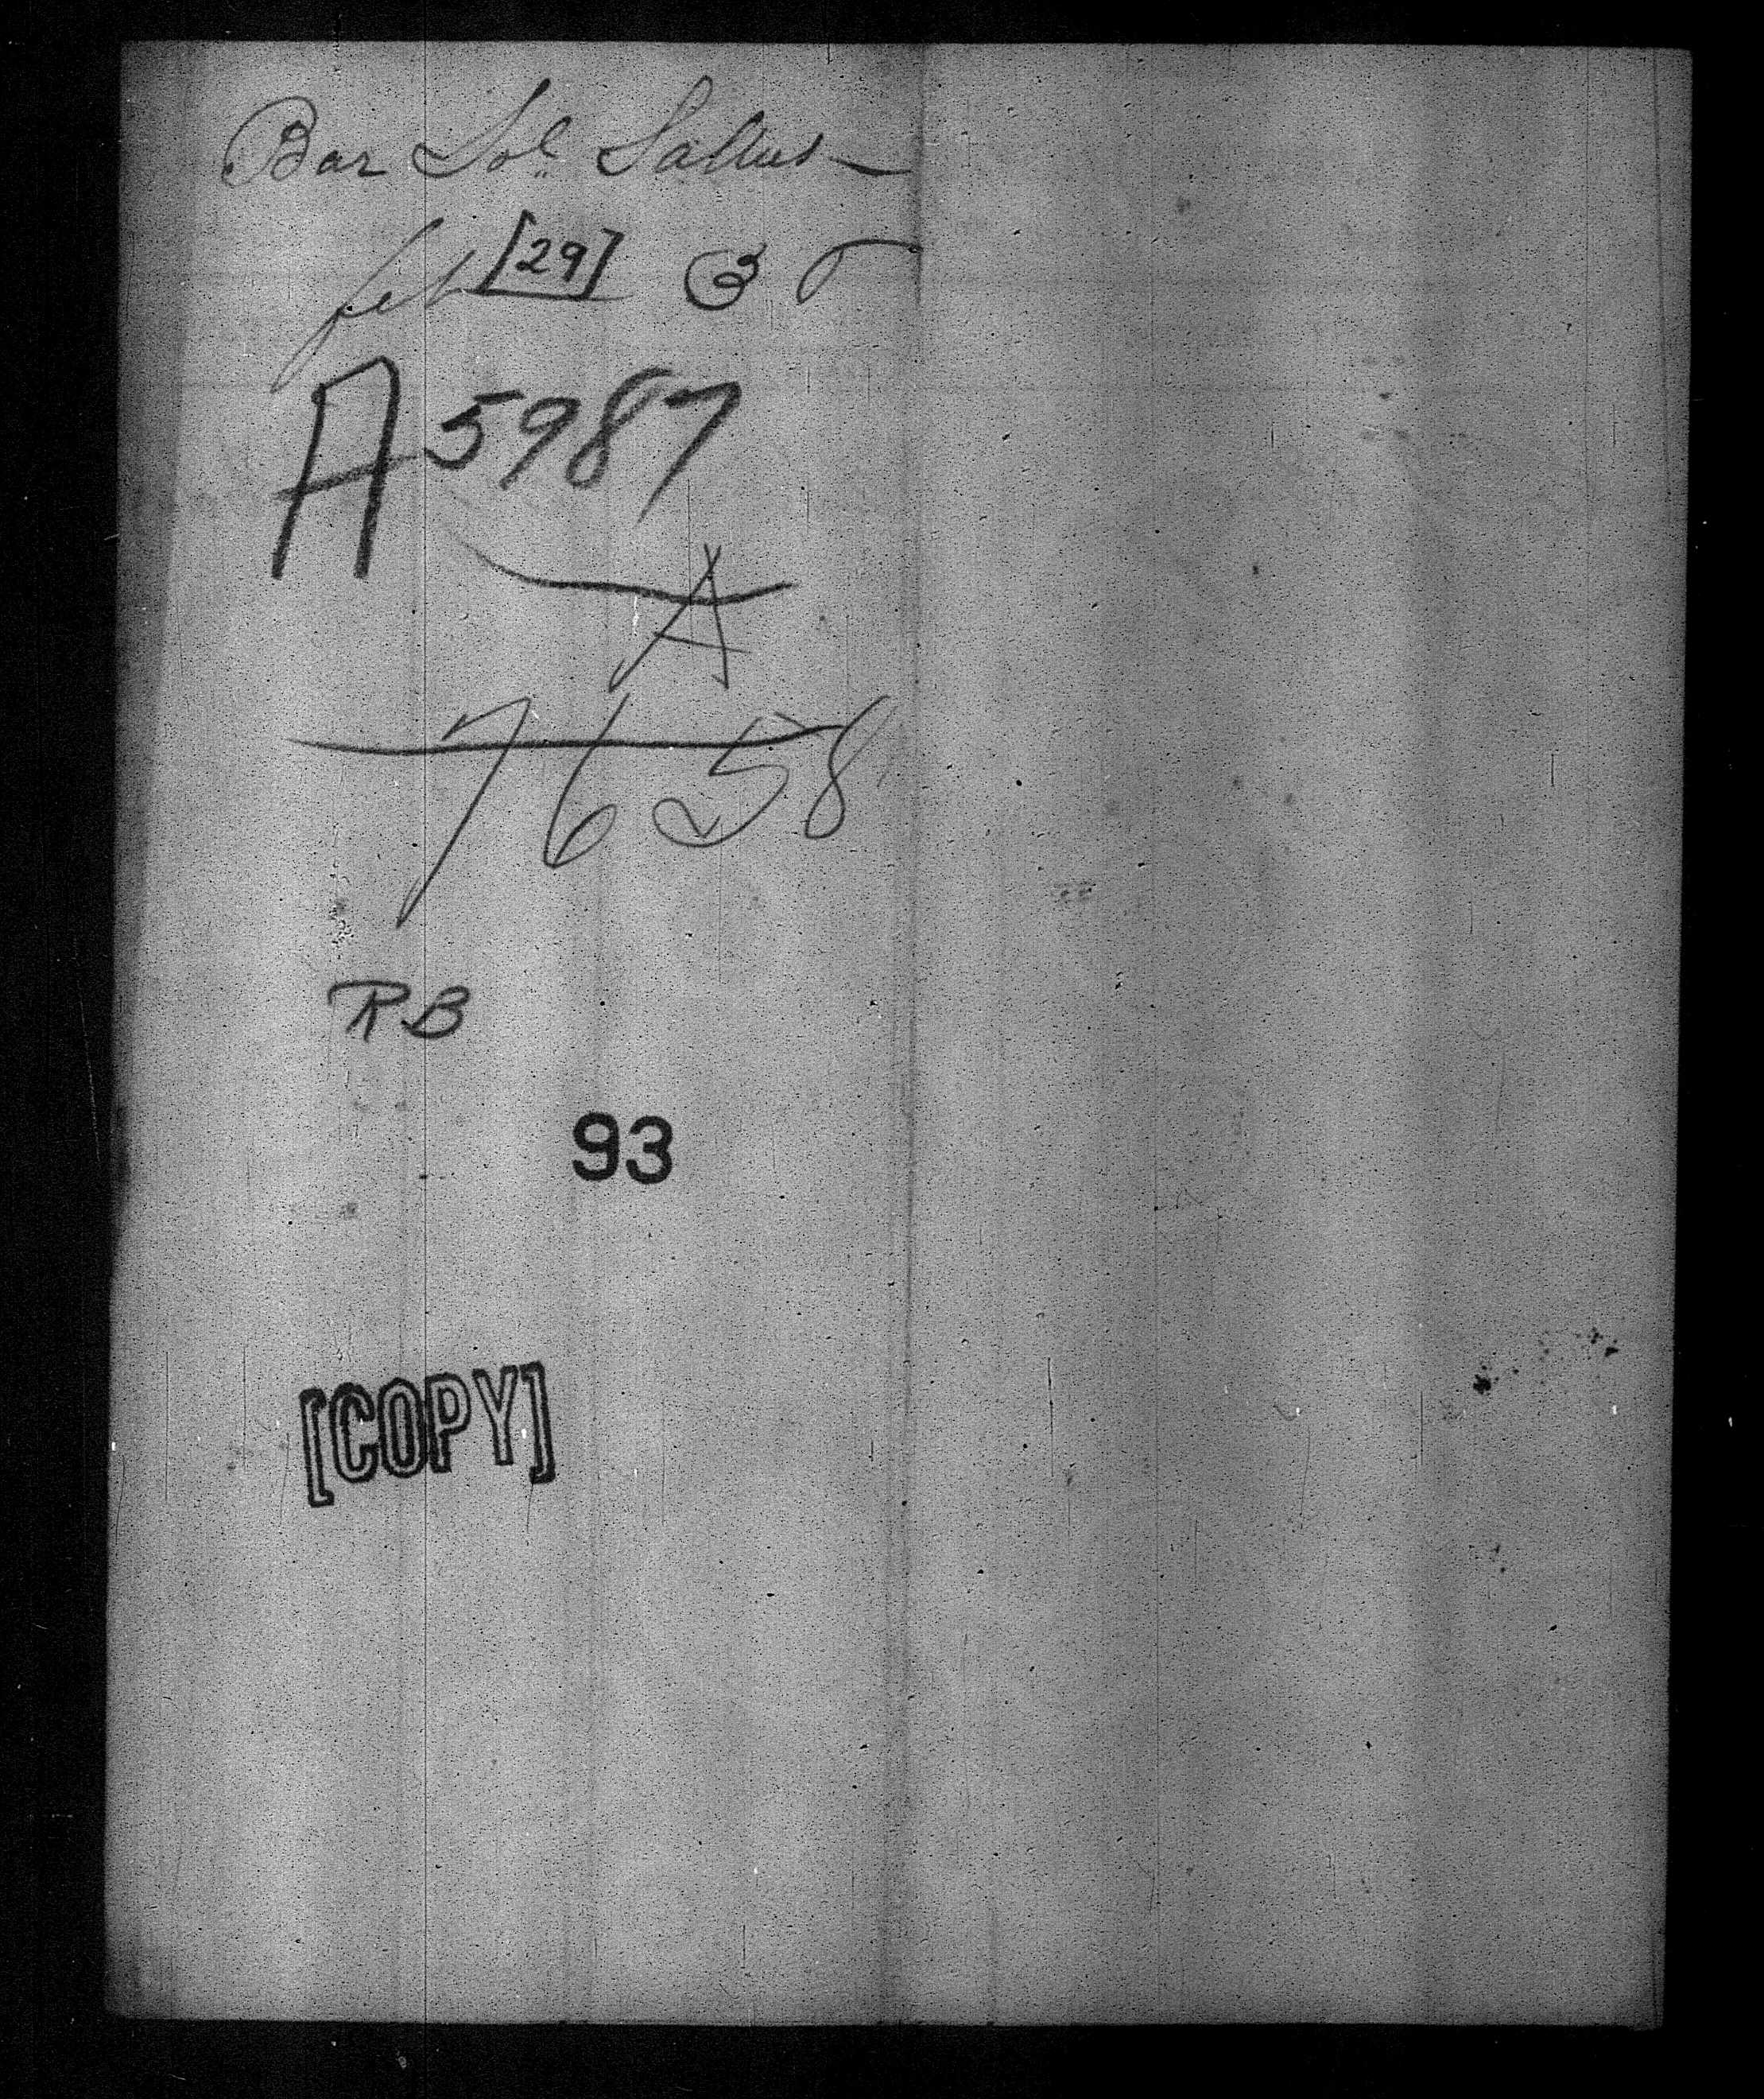 Bar Sol. Saltus
feb [29]
A 5987
A
7658
RB
93
[COPY]